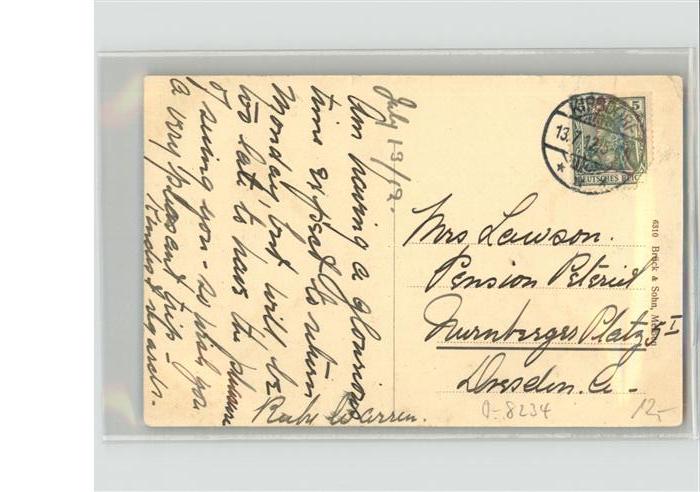 July 13/12.
Am having a glorious
time expect to return
Monday, but will be
too late to have the pleasure
of seeing you - so wish you
a very pleasant trip -
Kindest regards -
Ruby Warren.
13.7.12.
5
DEUTSCHES REICH
Mrs Lawson.
Pension
Nurnberger Platz 5 I
Dresden. A -
6310 Brück & Sohn, Meißen
A-8234
12,-